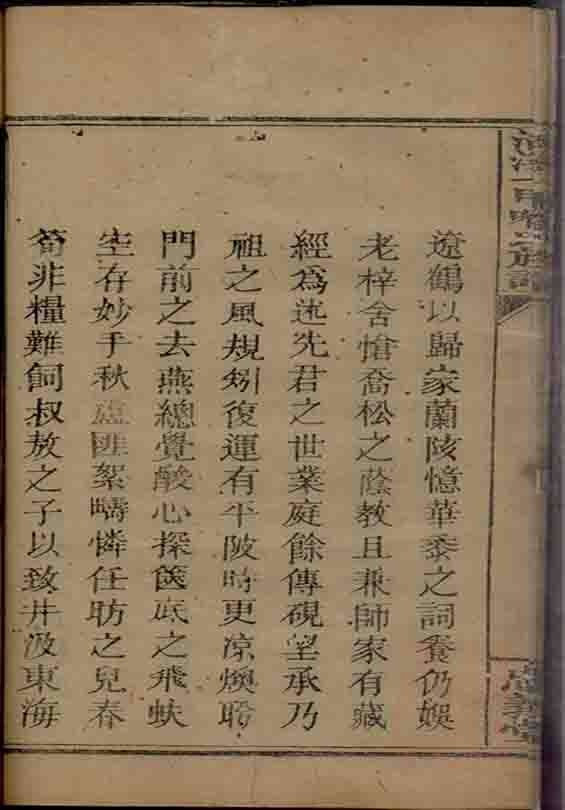 遼鶴以歸家蘭陔憶華黍之詞養仍娛
老梓舍愴喬松之蔭教且兼師家有藏
經為述先君之世業庭餘傳硯望承乃
祖之風規矧復運有平陂時更凉燠聆
門前之去燕總覺酸心探篋底之飛蚨
空存妙手秋虛匪絮疇憐任昉之兒春
筍非糧難飼叔敖之子以致井汲東海